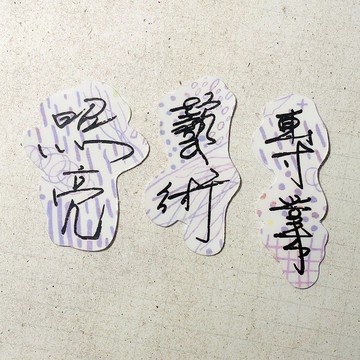 照亮
藝術
專業